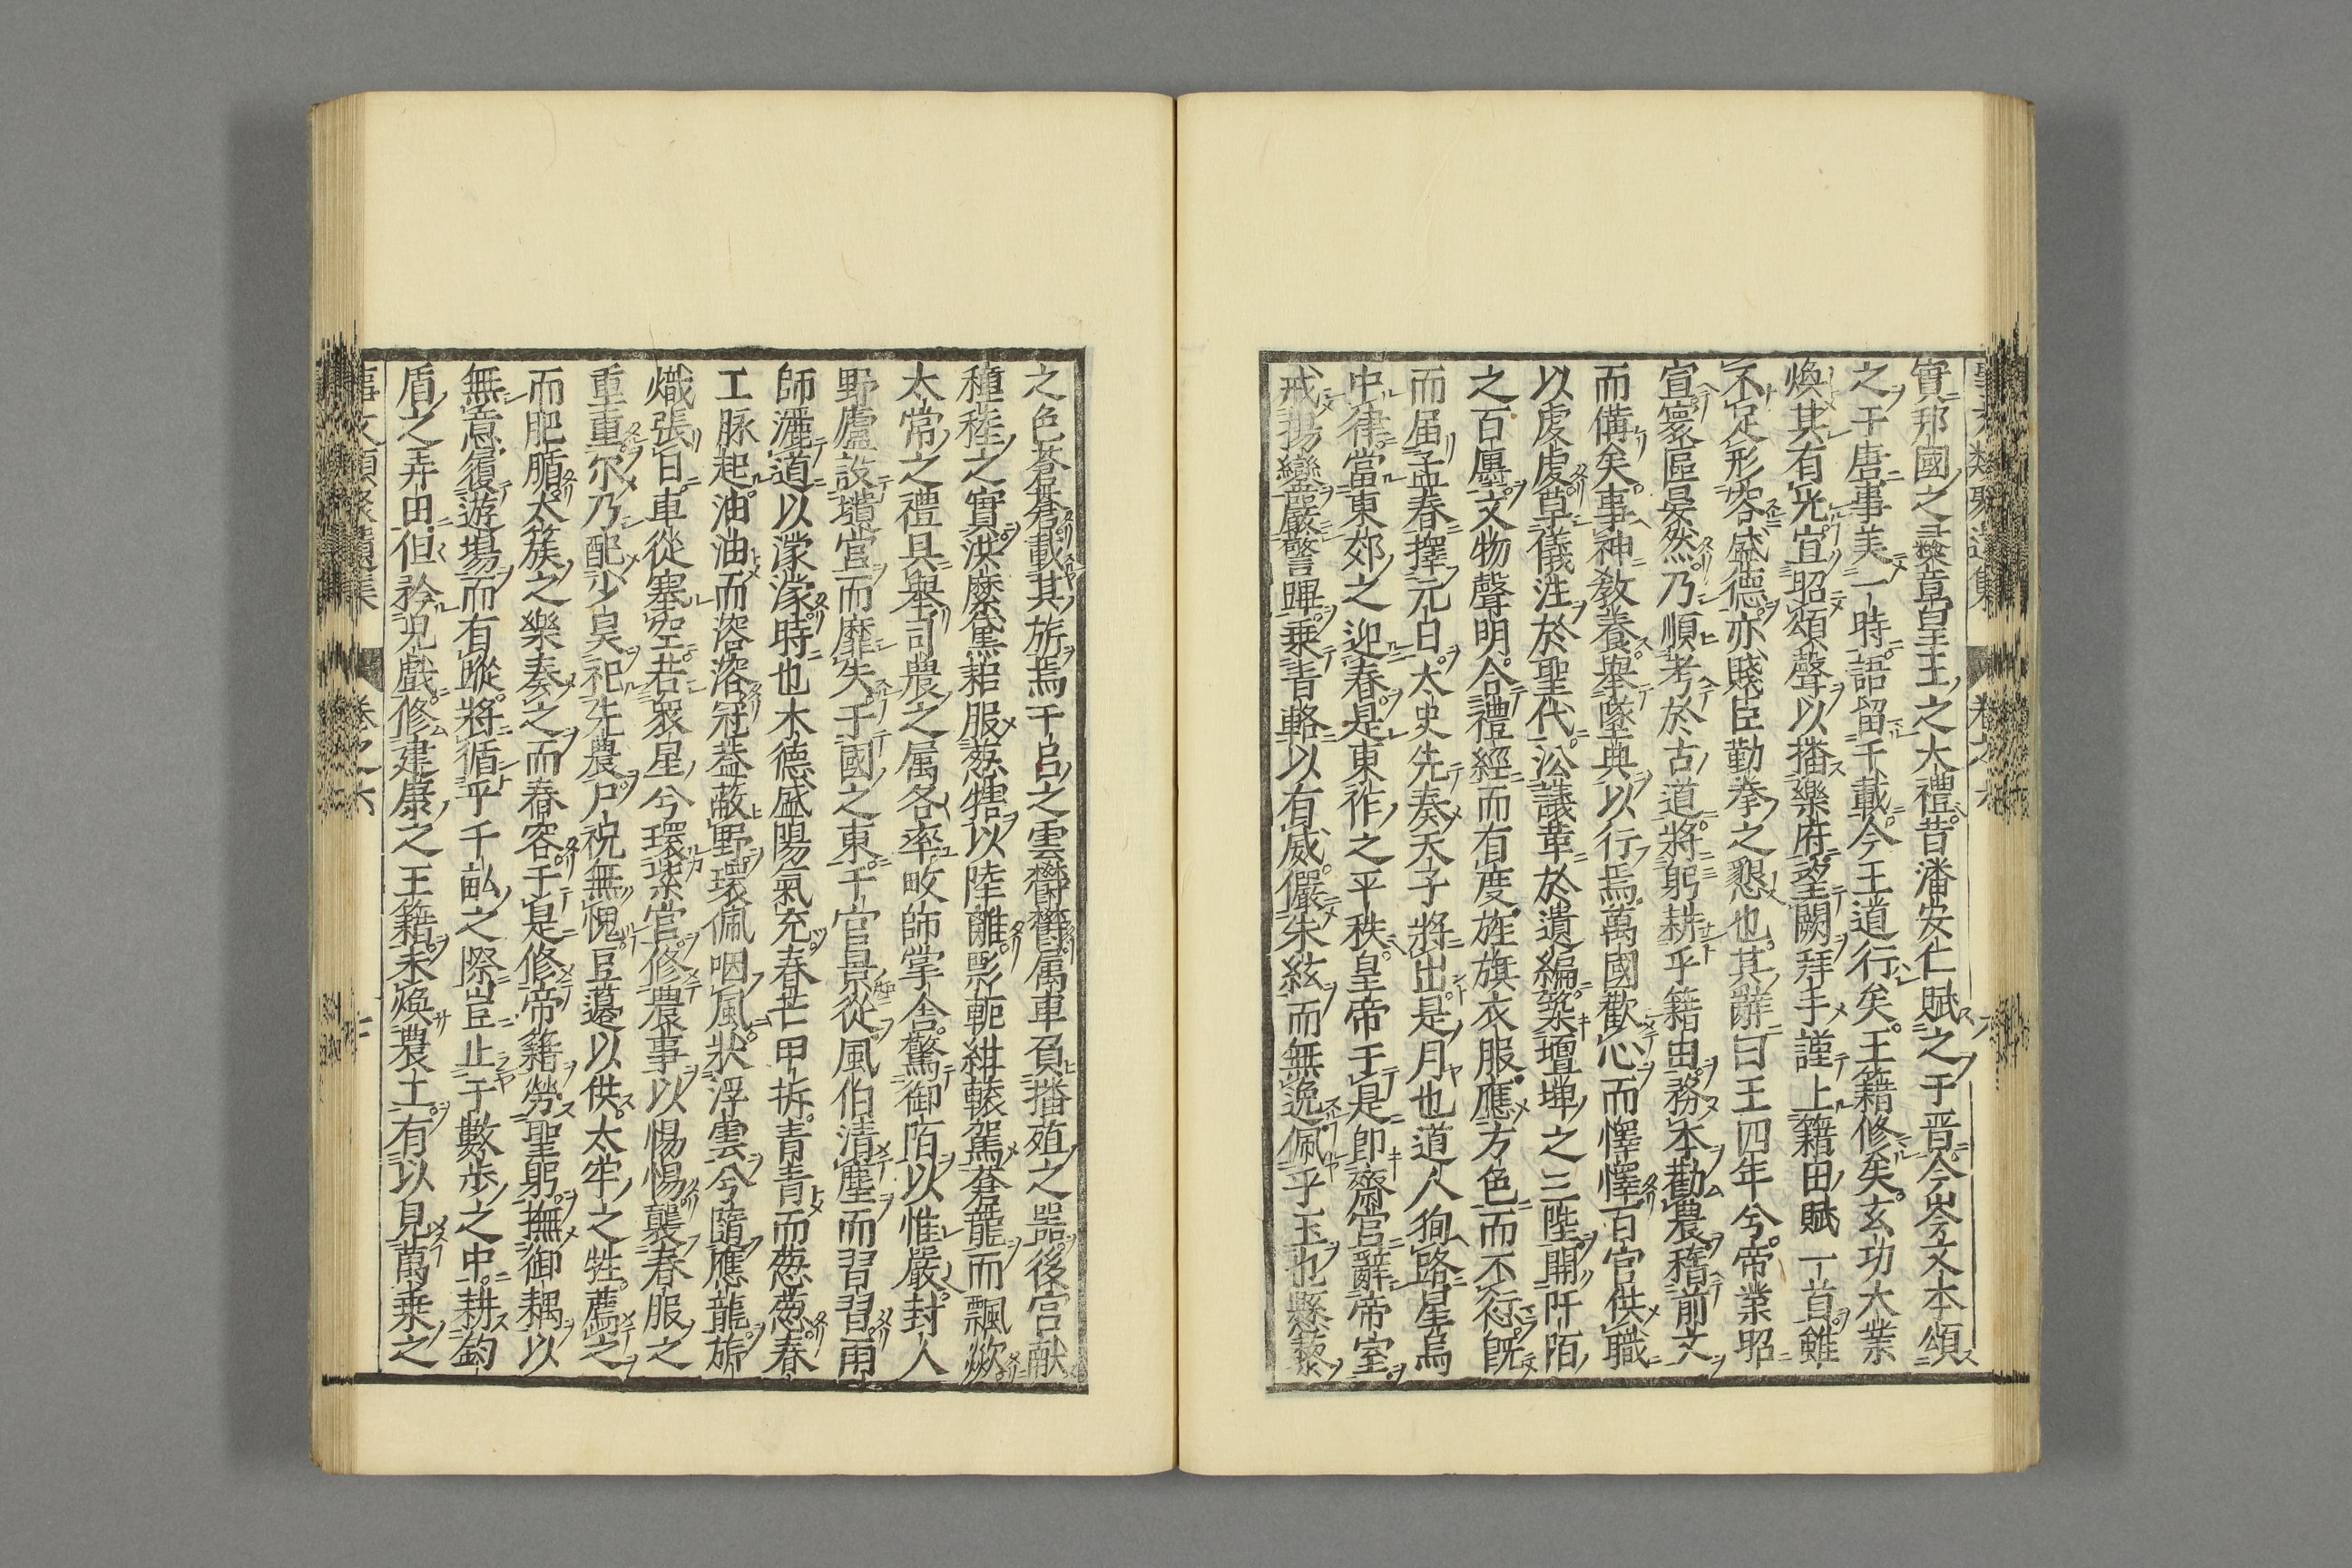 實邦國之彝章皇王之大禮昔潘安仁賦之于晋今岑文本頌
之于唐事美一時語留千載今王道行矣王籍修矣玄功大業
煥其有光宜昭頌聲以播樂府望闕拜手謹上籍田賦一首雖
不足形容盛德亦賤臣勤拳之懇也其辭曰王四年兮帝業昭
宣寰區晏然乃順考於古道將躬耕乎籍田務本勸農稽前文
而備矣事神教養舉墜典以行焉萬國歡心而懌懌百官供職
以虔虔草儀注於聖代訟議韋於遺編築壇墠之三陛開阡陌
之百廛文物聲明合禮經而有度旌旗衣服應方色而不愆旣
而届孟春擇元日太史先奏天子將出是月也道人狥路星鳥
中律當東郊之迎春是東作之平秩皇帝于是即齋宮辭帝室
戒揚鑾嚴警蹕乗青輅以有威儼朱絃而無逸佩乎玉也懸藜
之色蒼蒼載其旂焉千呂之雲欝欝属車負播殖之器後宮献
種稑之實洪縻䵣耜服葱犗以陸離髟軛紺轅駕蒼龍而飄歘
太常之禮具舉司農之属各率畋師掌舎驚御陌以惟嚴封人
野廬設壝宮而靡失于國之東千官景從風伯清塵而習習雨
師灑道以濛濛時也木德盛陽氣充春芒甲拆青青而葱葱春
工脉起油油而溶溶冠葢蔽野環佩咽風狀浮雲兮隨應龍旂
熾張日車從塞空若眾星兮環紫宮修農事以惕惕襲春服之
重重尔乃配少昊祀先農尸祝無愧豆籩以供太牢之牲薦之
而肥腯太簇之樂奏之而春容于是修帝籍勞聖躬撫御耦以
無意履遊場而有蹤將循乎千畝之際豈止于數步之中耕鈎
盾之弄田但矜兒戲修建康之王籍未煥農土有以見萬乗之
事文類聚遺集 卷之六